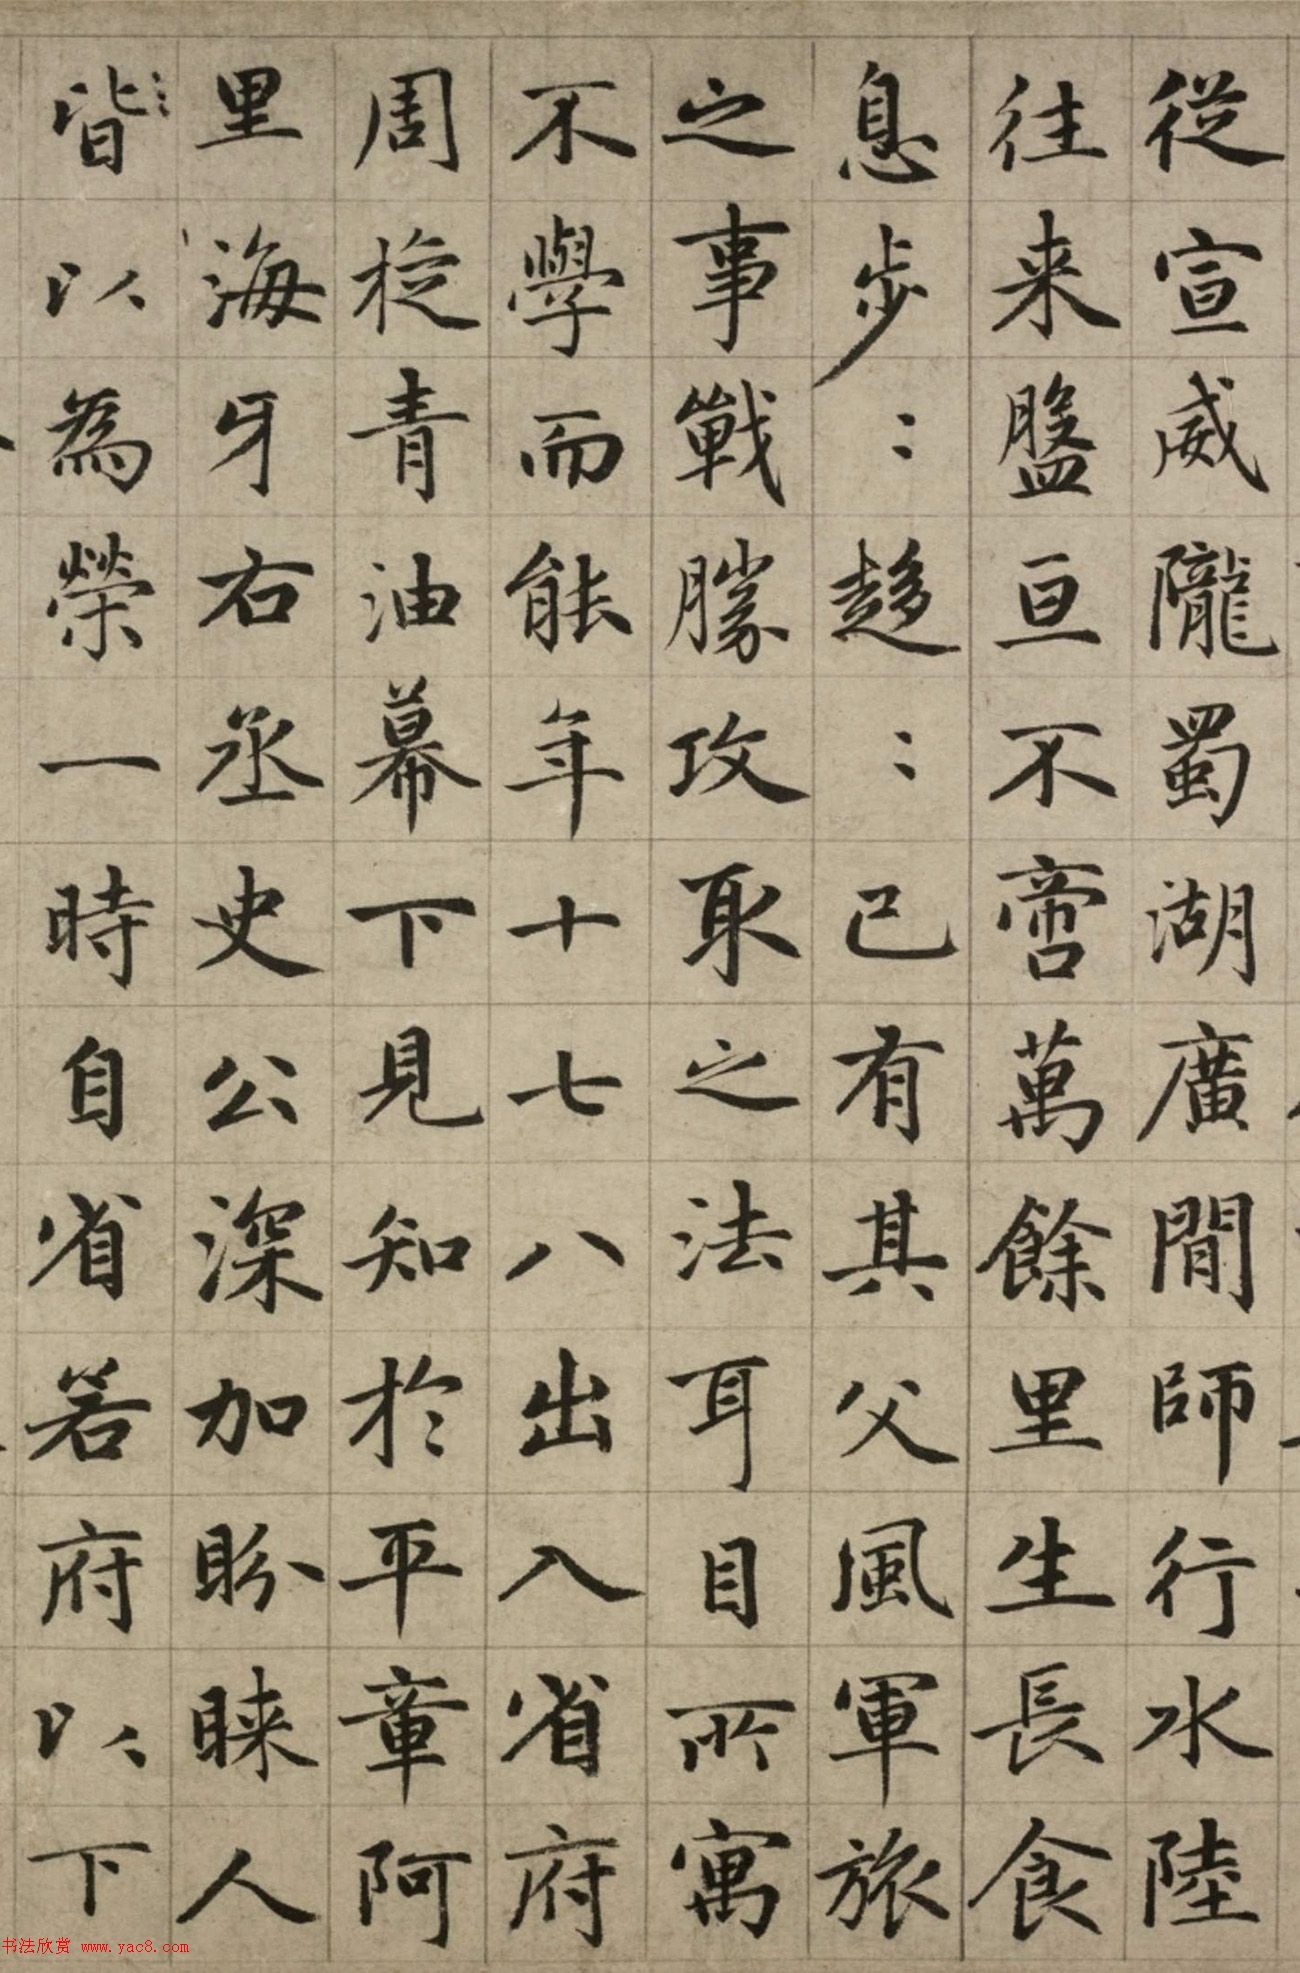 從宣威隴蜀湖廣間師行水陸
往来盤亘不啻萬餘里生長食
息步〻趍〻已有其父風軍旅
之事戰勝攻取之法耳目所寓
不學而能年十七八出入省府
周㧞青油幕下見知於平章阿
里海牙右丞史公深加盼睐人
皆以為榮一時自省若府以下
书法欣赏 www.yac8.com